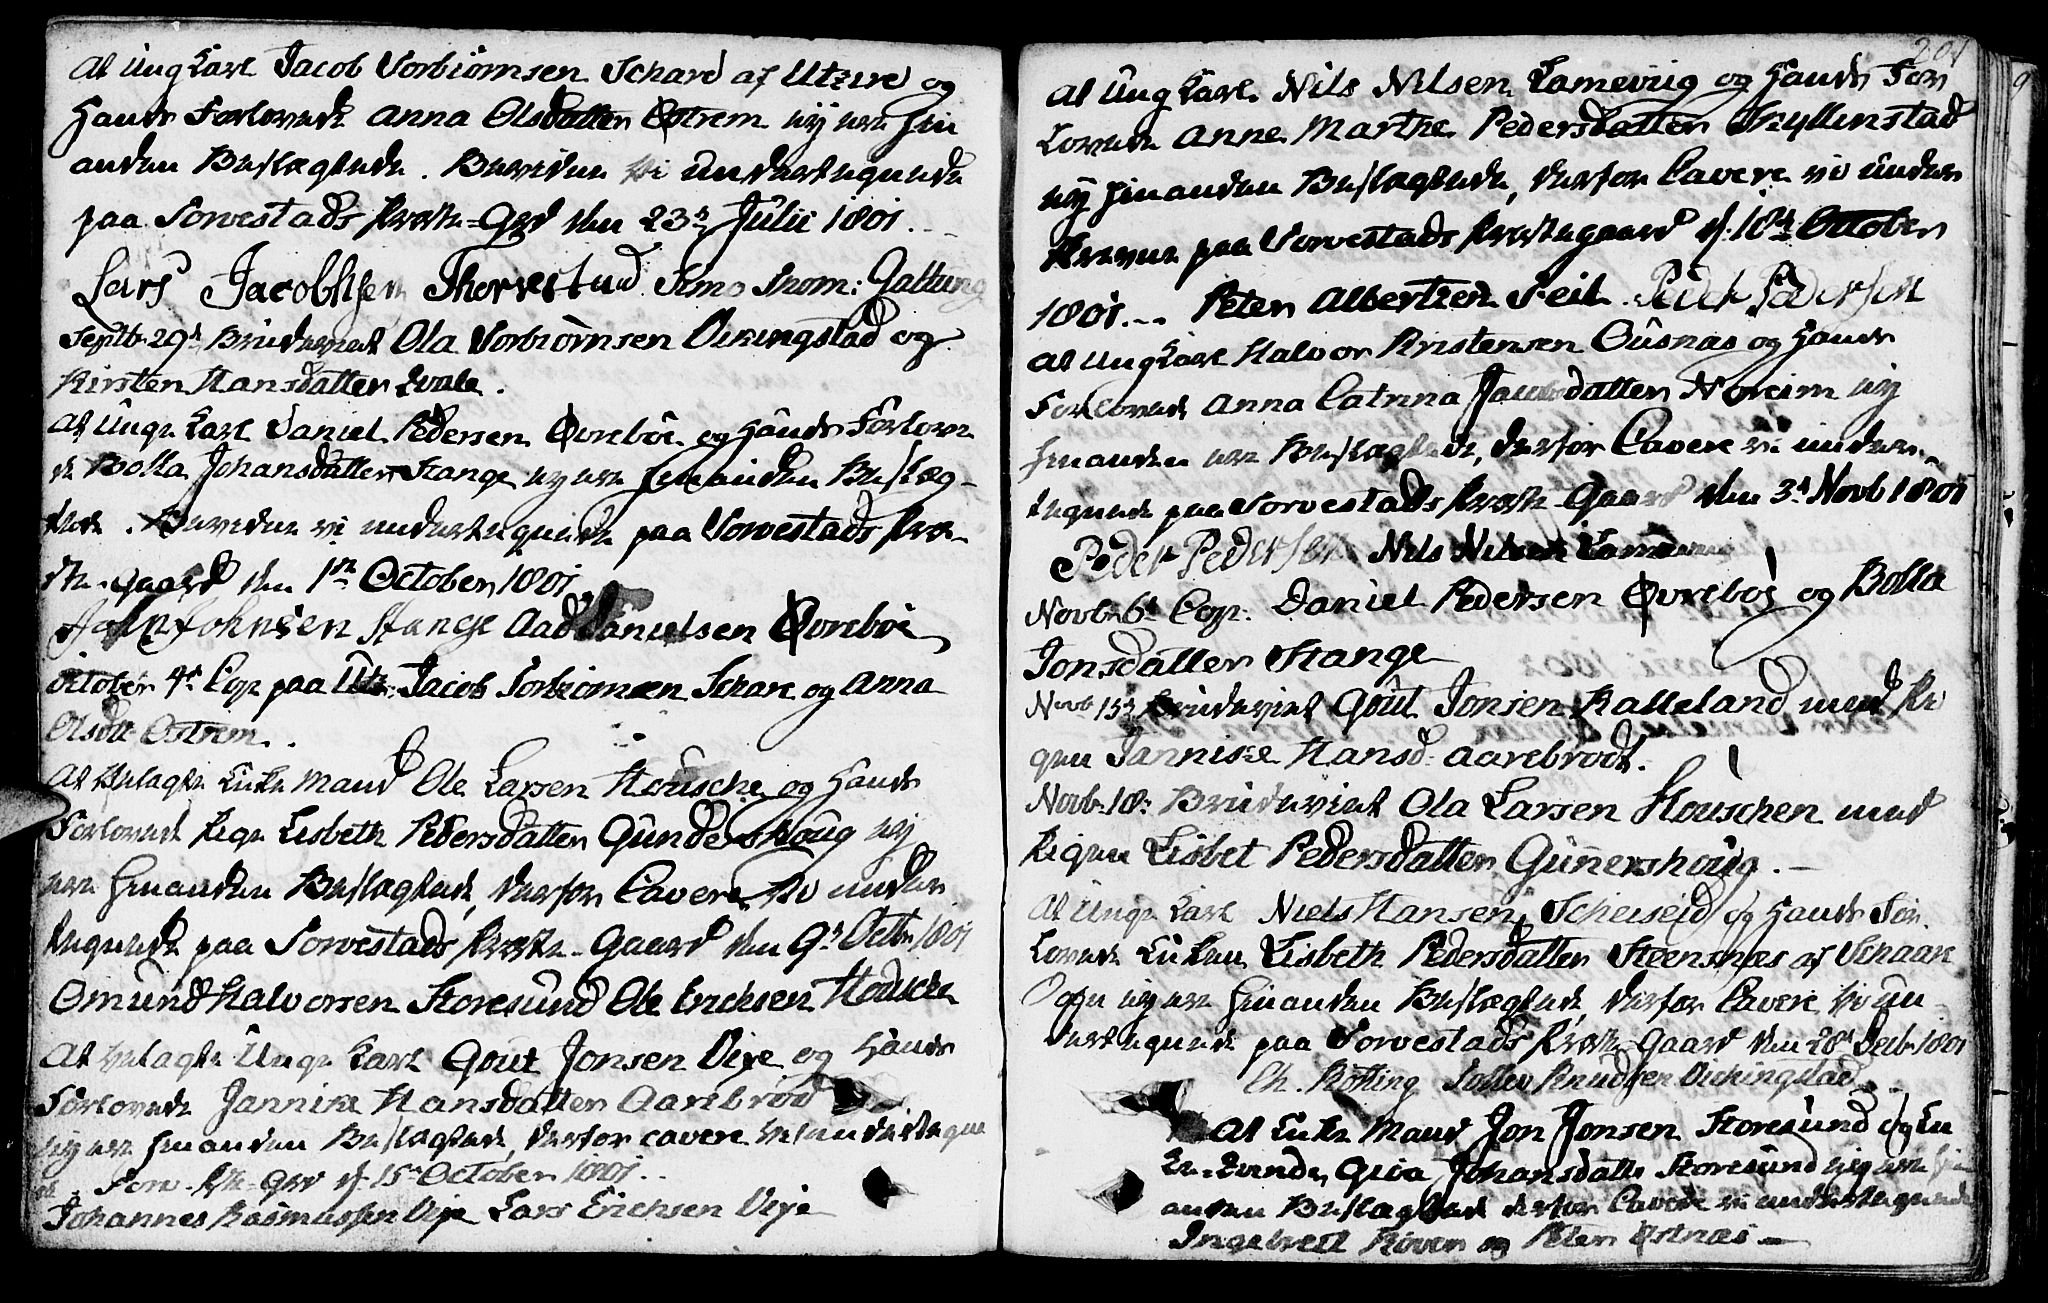 At Ung Karl Jacob Torbiörnsen Schare af Utzire og
Hands Forlovede Anna Olsdatter Østrem ej ere hin
anden Beslægtede. Bevidne vi undertegnede
paa Torvestads Præste-Grd den 23de Julii 1801.
Lars Jacobhsen Thorvestad Simo Thom: Gattung
Septb. 29d Brudeviet Ola Torbiörnsen Vikingstad og
Kirsten Hansdatter Hvale.
At Unge Karl Daniel Pedersen Øvreböe og Hands Forlove
de Bolla Johansdatter Stange ej ere hinanden Beslæg-
tede. Bevidne vi undertegnede paa Torvestads Præ-
ste-gaard den 1te October 1801
John Johnsen Stange Aad Danielsen Øvreböe
October 4d Cop. paa Utz: Jacob Torbiörnsen Schare og Anna
Olsdtt Østrem.
At Ærlagte Enke Mand Ole Larsen Housche og Hands
Forlovede Pige Lisbeth Pedersdatter Gundershoug ej
ere hinanden Beslagtede, derfor Cavere vi under
tegnede paa Torvestads Præste-Gaard den 9d Octb. 1801
Omund Halvorsen Storesund Ole Erichsen Housche
At ærlagte Unge Karl Gout Jonsen Vixe og Hands
Forlovede Jannike Hansdatter Aarebrod
ej ere hinanden Beslagtede, derfor cavere vi undertegne
de. Torv. Pste Grd d. 15d October 1801.
Johannes Rasmussen Vixe Lars Erichsen Vixe
201
At Ung Karl Nils Nilsen Lamevüg og Hands For
Lovede Anne Marthe Pedersdatter Skyllenstad
ej hinanden Beslagtede, derfor Cavere vi under
skrevne paa Torvestads Præstegaard d. 18de October
1801. Peter Albertsen Feil. Peder Pedersen
At Ung Karl Halvor Kristensen Ousnæs og Hands
Forlovede Anna Catrina Jacobsdatter Noreim ej
hinanden ere Beslagtede, derfor Cavere vi under-
tegnede paa Torvestads Præste-Gaard den 3d Novb 1801
Peder Pedersen Nils Nilsen Lame
Novb. 6d Cop. Daniel Pedersen Øvreböe og Bolla
Jonsdatter Stange
Novb 15d Brudeviet Gout Jonsen Kalleland med Pi
gen Jannike Hansd. Aarebrodt.
Novb. 18: Brudeviet Ola Larsen Houschen med
Pigen Lisbet Pedersdatter Gunershoug.
At Unge Karl Niels Hansen Scheiseid og Hands For
Lovede Enken Lisbeth Pedersdatter Steensnæs af Schaare
Sogn ej ere hinanden Beslægtede, derfor Cavere vi un
dertegnede paa Torvestads Præste-Gaard den 28d Decb. 1801
Ch. Rötting Tollev Knudsen Vichingstad
At Enke Mand Jon Jonsen Storesund og En
ke-Qvinde Giøa Johansdatte Storesund ej ere hin
anden Beslagtede derfor Cavere vi undertegnede
Ingebrect Risven og Peter Østnæs